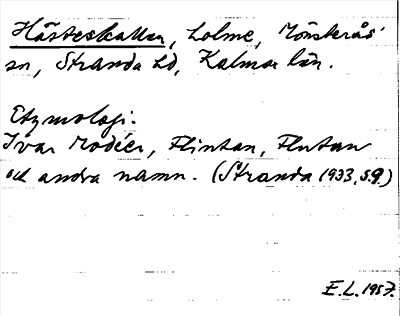 Hästeskallen, holme, Mönsterås
sn, Stranda hd, Kalmar län.
Etymologi.
Ivar Modéer, Flintan, Flutan
och andra namn. (Stranda 1933, s.9.)
E.L. 1957.